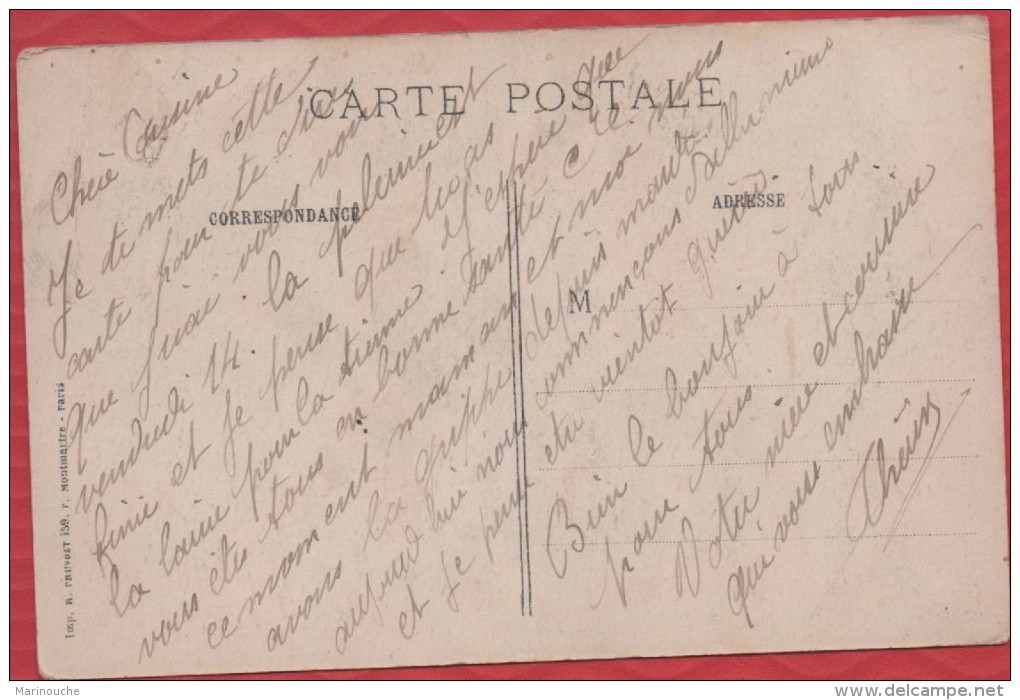 CARTE POSTALE
CORRESPONDANCE
ADRESSE
M
Imp. R. PRUVOST 159, r. Montmartre - Paris
Chère Cousine
Je te mets cette
carte pour te dire
que j'irai vous voir
vendredi 14. la pelerine est
finie et je pense que tu as
la laine pour la tienne j'espère que
vous êtes tous en bonne santé
ce moment maman et moi nous
avons la grippe depuis mardi
aujourd'hui nous commençons
et je pense
Bien le bonjour à tous
pour tous
Votre nièce et cousine
qui vous embrasse
Marinouche
www.delcampe.net